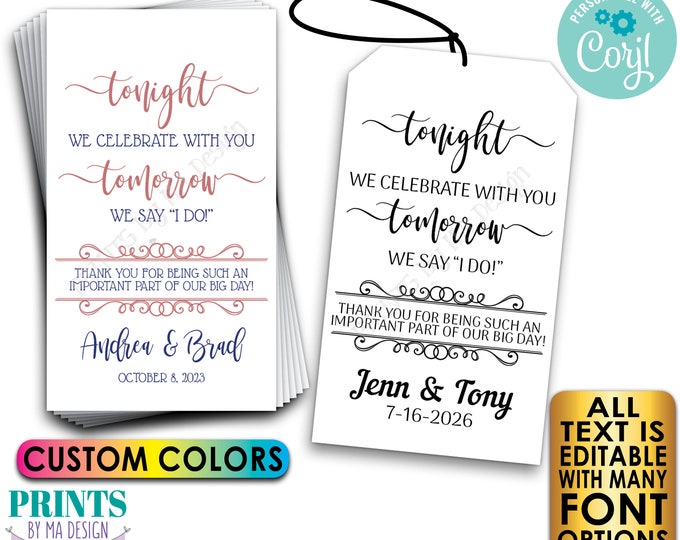 tonight
WE CELEBRATE WITH YOU
tomorrow
WE SAY “I DO!”
THANK YOU FOR BEING SUCH AN
IMPORTANT PART OF OUR BIG DAY!
Andrea & Brad
OCTOBER 8, 2023
tonight
WE CELEBRATE WITH YOU
tomorrow
WE SAY “I DO!”
THANK YOU FOR BEING SUCH AN
IMPORTANT PART OF OUR BIG DAY!
Jenn & Tony
7-16-2026
WITH
Corjl
CUSTOM COLORS
PRINTS
BY MA DESIGN
ALL
TEXT IS
EDITABLE
WITH MANY
FONT
OPTIONS